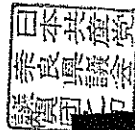 日本共産党
奈良県議会
議員団